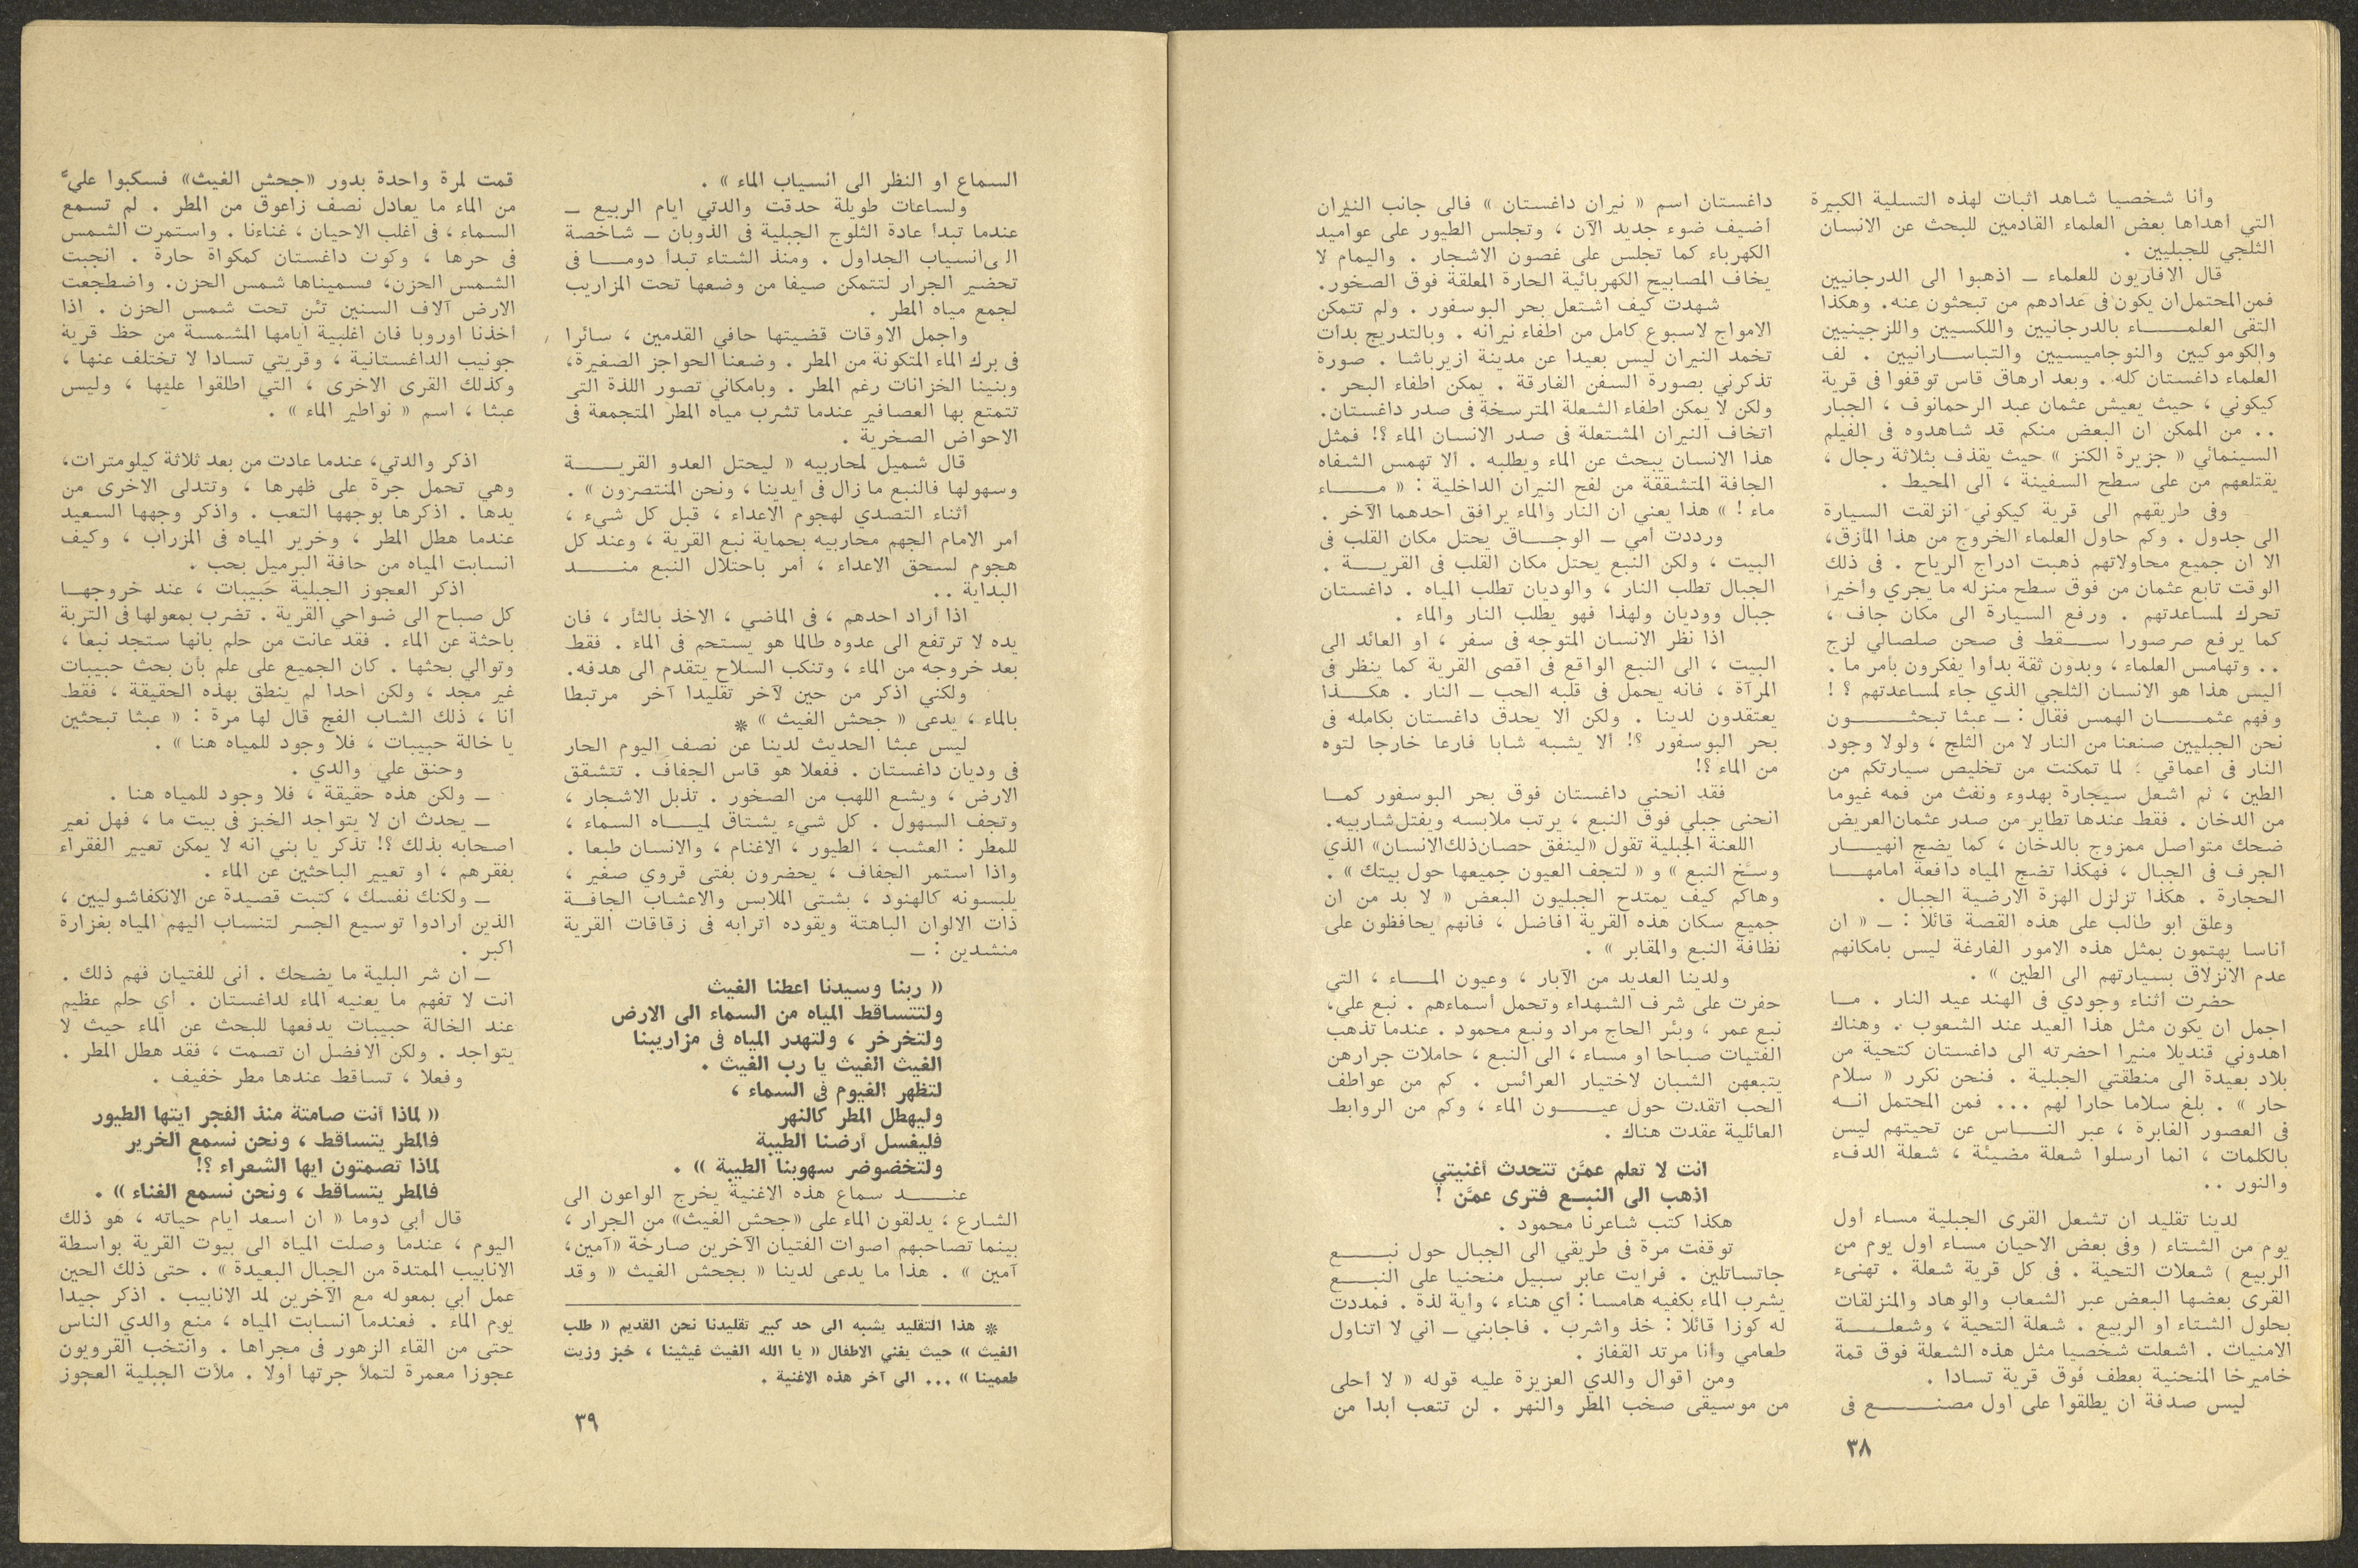 وأنا شخصيا شاهد اثبات لهذه التسلية الكبيرة
التي أهداها بعض العلماء القادمين للبحث عن الانسان
الثلجي للجبليين .
قال الافاريون للعلماء ــ اذهبوا الى الدرجانيين
فمن المحتمل ان يكون فى عدادهم من تبحثون عنه. وهكذا
التقى العلمــــاء بالدرجانيين واللكسيين واللزجينيين
والكوموكيين والنوجاميسيين والتباســارانيين . لف
العلماء داغستان كله . وبعد ارهاق قاس توقفوا فى قرية
كيكوني ، حيث يعيش عثمان عبد الرحمانوف ، الجبار
.. من الممكن ان البعض منكم قد شاهدوه فى الفيلم
السينمائي « جزيرة الكنز » حيث يقذف بثلاثة رجال ،
يقتلعهم من على سطح السفينة ، الى المحيط .
وفى طريقهم الى قرية كيكوني انزلقت السيارة
الى جدول . وكم حاول العلماء الخروج من هذا المأزق،
الا ان جميع محاولاتهم ذهبت ادراج الرياح . فى ذلك
الوقت تابع عثمان من فوق سطح منزله ما يجري وأخيرا
تحرك لمساعدتهم . ورفع السيارة الى مكان جاف ،
كما يرفع صرصورا ســقط فى صحن صلصالي لزج
.. وتهامس العلماء ، وبدون ثقة بدأوا يفكرون بأمر ما .
اليس هذا هو الانسان الثلجي الذي جاء لمساعدتهم ؟ !
وفهم عثمــــان الهمس فقال : ــ عبثا تبحثــــون
نحن الجبليين صنعنا من النار لا من الثلج ، ولولا وجود
النار فى اعماقي ؛ لما تمكنت من تخليص سيارتكم من
الطين ، ثم اشعل سيجارة بهدوء ونفث من فمه غيوما
من الدخان . فقط عندها تطاير من صدر عثمان العريض
ضحك متواصل ممزوج بالدخان ، كما يضج انهيـــار
الجرف فى الجبال ، فهكذا تضج المياه دافعة امامهـــا
الحجارة . هكذا تزلزل الهزة الارضية الجبال .
وعلق ابو طالب على هذه القصة قائلا : ــ « ان
أناسا يهتمون بمثل هذه الامور الفارغة ليس بامكانهم
عدم الانزلاق بسيارتهم الى الطين » .
حضرت أثناء وجودي فى الهند عيد النار . مــا
اجمل ان يكون مثل هذا العيد عند الشعوب . وهناك
اهدوني قنديلا منيرا احضرته الى داغستان كتحية من
بلاد بعيدة الى منطقتي الجبلية . فنحن نكرر « سلام
حار » . بلغ سلاما حارا لهم ... فمن المحتمل انــه
فى العصور الغابرة ، عبر النــــاس عن تحيتهم ليس
بالكلمات ، انما ارسلوا شعلة مضيئة ، شعلة الدفء
والنور ..
لدينا تقليد ان تشعل القرى الجبلية مساء أول
يوم من الشتاء ( وفى بعض الاحيان مساء اول يوم من
الربيع ) شعلات التحية . فى كل قرية شعلة . تهنىء
القرى بعضها البعض عبر الشعاب والوهاد والمنزلقات
بحلول الشتاء او الربيع . شعلة التحية ، وشعلــــة
الامنيات . اشعلت شخصيا مثل هذه الشعلة فوق قمة
خاميرخا المنحنية بعطف فوق قرية تسادا .
ليس صدفة ان يطلقوا على اول مصنـــــع فى
داغستان اسم « نيران داغستان » فالى جانب النيران
أضيف ضوء جديد الآن ، وتجلس الطيور على عواميد
الكهرباء كما تجلس على غصون الاشجار . واليمام لا
يخاف المصابيح الكهربائية الحارة المعلقة فوق الصخور.
شهدت كيف اشتعل بحر البوسفور . ولم تتمكن
الامواج لاسبوع كامل من اطفاء نيرانه . وبالتدريج بدأت
تخمد النيران ليس بعيدا عن مدينة ازيرباشا . صورة
تذكرني بصورة السفن الغارقة . يمكن اطفاء البحر .
ولكن لا يمكن اطفاء الشعلة المترسخة فى صدر داغستان.
اتخاف النيران المشتعلة فى صدر الانسان الماء ؟! فمثل
هذا الانسان يبحث عن الماء ويطلبه . ألا تهمس الشفاه
الجافة المتشققة من لفح النيران الداخلية : « مــــاء
ماء ! » هذا يعني ان النار والماء يرافق احدهما الآخر .
ورددت أمي ــ الوجــاق يحتل مكان القلب فى
البيت ، ولكن النبع يحتل مكان القلب فى القريــــة .
الجبال تطلب النار ، والوديان تطلب المياه . داغستان
جبال ووديان ولهذا فهو يطلب النار والماء .
اذا نظر الانسان المتوجه فى سفر ، او العائد الى
البيت ، الى النبع الواقع فى اقصى القرية كما ينظر فى
المرآة ، فانه يحمل فى قلبه الحب ــ النار . هكــــذا
يعتقدون لدينا . ولكن ألا يحدق داغستان بكامله فى
بحر البوسفور ؟! ألا يشبه شابا فارعا خارجا لتوه
من الماء ؟!
فقد انحنى داغستان فوق بحر البوسفور كمــا
انحنى جبلي فوق النبع ، يرتب ملابسه ويفتل شاربيه.
اللعنة الجبلية تقول «لينفق حصان ذلك الانسان» الذي
وسـّخ النبع » و « لتجف العيون جميعها حول بيتك » .
وهاكم كيف يمتدح الجبليون البعض « لا بد من ان
جميع سكان هذه القرية أفاضل ، فانهم يحافظون على
نظافة النبع والمقابر » .
ولدينا العديد من الآبار ، وعيون المــــاء ، التي
حفرت على شرف الشهداء وتحمل أسماءهم . نبع علي،
نبع عمر ، وبئر الحاج مراد ونبع محمود . عندما تذهب
الفتيات صباحا او مساء ، الى النبع ، حاملات جرارهن
يتبعهن الشبان لاختيار العرائس . كم من عواطف
الحب اتقدت حول عيــــون الماء ، وكم من الروابط
العائلية عقدت هناك .
انت لا تعلم عمَّن تتحدث أغنيتي
اذهب الى النبــع فترى عمَّن !
هكذا كتب شاعرنا محمود .
توقفت مرة فى طريقي الى الجبال حول نبــــع
جاتساتلين . فرأيت عابر سبيل منحنيا على النبــــع
يشرب الماء بكفيه هامسا : أي هناء ، وأية لذة . فمددت
له كوزا قائلا : خذ واشرب . فأجابني ــ اني لا اتناول
طعامي وأنا مرتد القفاز .
ومن اقوال والدي العزيزة عليه قوله « لا أحلى
من موسيقى صخب المطر والنهر . لن تتعب أبدا من
٣٨
السماع او النظر الى انسياب الماء » .
ولساعات طويلة حدقت والدتي ايام الربيع ــ
عندما تبدأ عادة الثلوج الجبلية فى الذوبان ــ شاخصة
الى انسياب الجداول . ومنذ الشتاء تبدأ دومــــا فى
تحضير الجرار لتتمكن صيفا من وضعها تحت المزاريب
لجمع مياه المطر .
واجمل الاوقات قضيتها حافي القدمين ، سائرا
فى برك الماء المتكونة من المطر . وضعنا الحواجز الصغيرة،
وبنينا الخزانات رغم المطر . وبامكاني تصور اللذة التى
تتمتع بها العصافير عندما تشرب مياه المطر المتجمعة فى
الاحواض الصخرية .
قال شميل لمحاربيه « ليحتل العدو القريــــة
وسهولها فالنبع ما زال فى أيدينا ، ونحن المنتصرون » .
أثناء التصدي لهجوم الاعداء ، قبل كل شيء ،
أمر الامام الجهم محاربيه بحماية نبع القرية ، وعند كل
هجوم لسحق الاعداء ، أمر باحتلال النبع منــــد
البداية ..
اذا أراد احدهم ، فى الماضي ، الاخذ بالثأر ، فان
يده لا ترتفع الى عدوه طالما هو يستحم فى الماء . فقط
بعد خروجه من الماء ، وتنكب السلاح يتقدم الى هدفه.
ولكني اذكر من حين لآخر تقليدا آخر مرتبطا
بالماء ، يدعى « جحش الغيث » *
ليس عبثا الحديث لدينا عن نصف اليوم الحار
فى وديان داغستان . ففعلا هو قاس الجفاف . تتشقق
الارض ، ويشع اللهب من الصخور . تذبل الاشجار ،
وتجف السهول . كل شيء يشتاق لميـــاه السماء ،
للمطر : العشب ، الطيور ، الاغنام ، والانسان طبعا .
واذا استمر الجفاف ، يحضرون بفتى قروي صغير ،
يلبسونه كالهنود ، بشتى الملابس والاعشاب الجافــة
ذات الالوان الباهتة ويقوده اترابه فى زقاقات القرية
منشدين : ــ
« ربنا وسيدنا اعطنا الغيث
ولتتساقط المياه من السماء الى الارض
ولتخرخر ، ولتهدر المياه فى مزاريبنا
الغيث الغيث يا رب الغيث .
لتظهر الغيوم فى السماء ،
وليهطل المطر كالنهر
فليغسل أرضنا الطيبة
ولتخضوضر سهوبنا الطيبة » .
عنــــد سماع هذه الاغنية يخرج الواعون الى
الشارع ، يدلقون الماء على «جحش الغيث» من الجرار ،
بينما تصاحبهم اصوات الفتيان الآخرين صارخة «آمين،
آمين » . هذا ما يدعى لدينا « بجحش الغيث « وقد
* هذا التقليد يشبه الى حد كبير تقليدنا نحن القديم « طلب
الغيث » حيث يغني الاطفال « يا الله الغيث غيثينا ، خبز وزيت
طعمينا » ... الى آخر هذه الاغنية .
٣٩
قمت لمرة واحدة بدور «جحش الغيث» فسكبوا عليَّ
من الماء ما يعادل نصف زاعوق من المطر . لم تسمع
السماء ، فى أغلب الاحيان ، غناءنا . واستمرت الشمس
فى حرها ، وكوت داغستان كمكواة حارة . انجبت
الشمس الحزن، فسميناها شمس الحزن. واضطجعت
الارض آلاف السنين تئن تحت شمس الحزن . اذا
أخذنا اوروبا فان اغلبية ايامها المشمسة من حظ قرية
جونيب الداغستانية ، وقريتي تسادا لا تختلف عنها ،
وكذلك القرى الاخرى ، التي اطلقوا عليها ، وليس
عبثا ، اسم « نواطير الماء » .
اذكر والدتي، عندما عادت من بعد ثلاثة كيلومترات،
وهي تحمل جرة على ظهرها ، وتتدلى الاخرى من
يدها . اذكرها بوجهها التعب . واذكر وجهها السعيد
عندما هطل المطر ، وخرير المياه فى المزراب ، وكيف
انسابت المياه من حافة البرميل بحب .
اذكر العجوز الجبلية حَبيبات ، عند خروجهــا
كل صباح الى ضواحي القرية . تضرب بمعولها فى التربة
باحثة عن الماء . فقد عانت من حلم بأنها ستجد نبعا ،
وتوالي بحثها . كان الجميع على علم بأن بحث حبيبات
غير مجد ، ولكن احدا لم ينطق بهذه الحقيقة ، فقط
أنا ، ذلك الشاب الفج قال لها مرة : « عبثا تبحثين
يا خالة حبيبات ، فلا وجود للمياه هنا » .
وحنق علي والدي .
ــ ولكن هذه حقيقة ، فلا وجود للمياه هنا .
ــ يحدث ان لا يتواجد الخبز فى بيت ما ، فهل نعير
اصحابه بذلك ؟! تذكر يا بني انه لا يمكن تعيير الفقراء
بفقرهم ، او تعيير الباحثين عن الماء .
ــ ولكنك نفسك ، كتبت قصيدة عن الانكفاشوليين ،
الذين ارادوا توسيع الجسر لتنساب اليهم المياه بغزارة
اكبر .
ــ ان شر البلية ما يضحك . أنى للفتيان فهم ذلك .
انت لا تفهم ما يعنيه الماء لداغستان . أي حلم عظيم
عند الخالة حبيبات يدفعها للبحث عن الماء حيث لا
يتواجد . ولكن الافضل ان تصمت ، فقد هطل المطر .
وفعلا ، تساقط عندها مطر خفيف .
« لماذا أنت صامتة منذ الفجر ايتها الطيور
فالمطر يتساقط ، ونحن نسمع الخرير
لماذا تصمتون ايها الشعراء ؟!
فالمطر يتساقط ، ونحن نسمع الغناء » .
قال أبي دوما « ان اسعد ايام حياته ، هو ذلك
اليوم ، عندما وصلت المياه الى بيوت القرية بواسطة
الانابيب الممتدة من الجبال البعيدة » . حتى ذلك الحين
عمل أبي بمعوله مع الآخرين لمد الانابيب . اذكر جيدا
يوم الماء . فعندما انسابت المياه ، منع والدي الناس
حتى من القاء الزهور فى مجراها . وانتخب القرويون
عجوزا معمرة لتملأ جرتها أولا . ملأت الجبلية العجوز